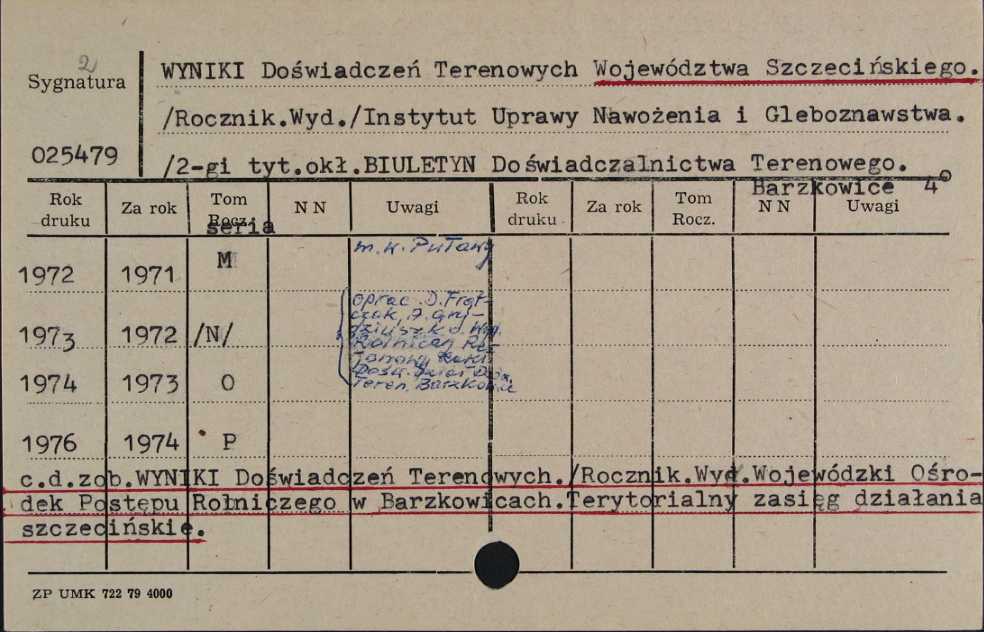 2
Sygnatura
WYNIKI Doświadczeń Terenowych Województwa Szczecińskiego.
/Rocznik.Wyd./Instytut Uprawy Nawożenia i Gleboznawstwa.
025479
/2-gi tyt.okł.BIULETYN Doświadczalnictwa Terenowego.
Barzkowice 4°
Rok druku Za rok Tom Rocz. N N Uwagi Rok druku Za rok Tom Rocz. N N Uwagi
seria
1972 1971 M m.w. Puławy
1973 1972 /N/
oprac. D. Frąt-
czak,
Teren. Barzkowice
1974 1973 O
1976 1974 P
c.d.zob.WYNIKI Doświadczeń Terenowych./Rocznik.Wyd.Wojewódzki Ośro-
dek Postępu Rolniczego w Barzkowicach.Terytorialny zasięg działania
szczecińskie.
ZP UMK 722 79 4000